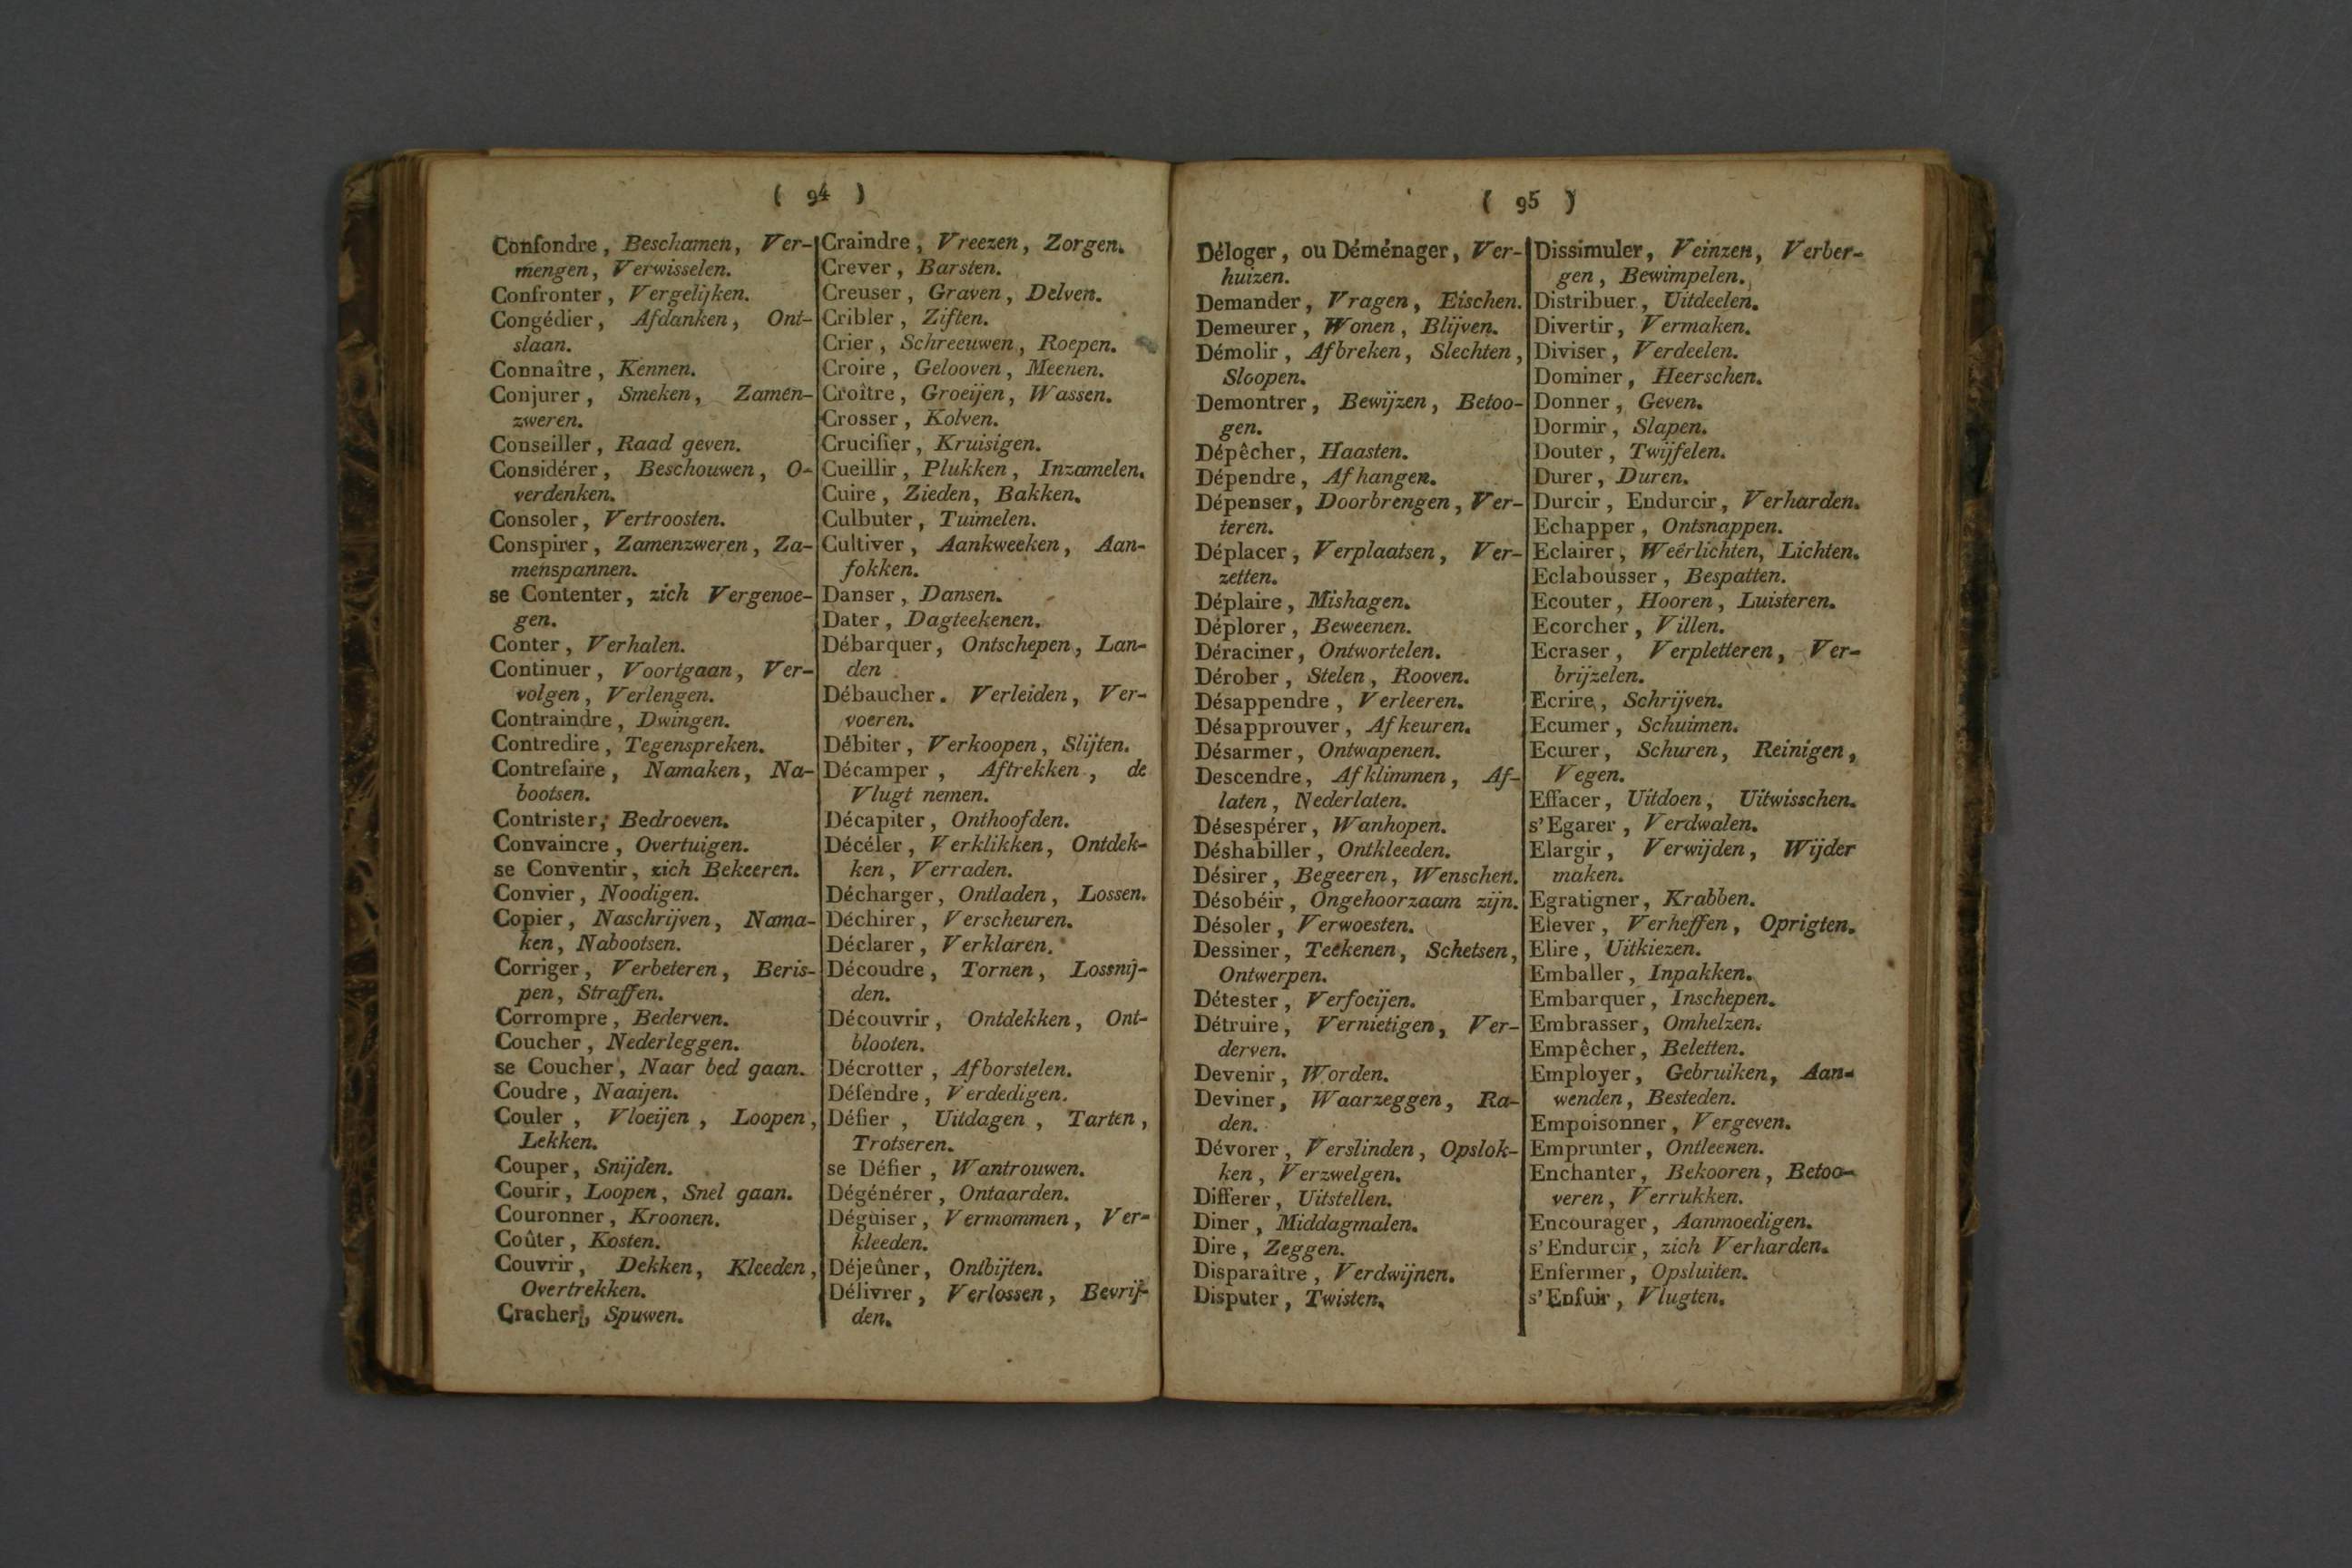 ( 94 )
Confondre, Beschamen, Ver-
mengen, Verwisselen.
Confronter, Vergelijken.
Congédier, Afdanken, Ont-
slaan.
Connaître, Kennen.
Conjurer, Smeken, Zamen-
zweren.
Conseiller, Raad geven.
Considérer, Beschouwen, O-
verdenken.
Consoler, Vertroosten.
Conspirer, Zamenzweren, Za-
menspannen.
se Contenter, zich Vergenoe-
gen.
Conter, Verhalen.
Continuer, Voortgaan, Ver-
volgen, Verlengen.
Contraindre, Dwingen.
Contredire, Tegenspreken.
Contrefaire, Namaken, Na-
bootsen.
Contrister, Bedroeven.
Convaincre, Overtuigen.
se Conventir, zich Bekeeren.
Convier, Noodigen.
Copier, Naschrijven, Nama-
ken, Nabootsen.
Corriger, Verbeteren, Beris-
pen, Straffen.
Corrompre, Bederven.
Coucher, Nederleggen.
se Coucher, Naar bed gaan.
Coudre, Naaijen.
Couler, Vloeijen, Loopen,
Lekken.
Couper, Snijden.
Courir, Loopen, Snel gaan.
Couronner, Kroonen.
Coûter, Kosten.
Couvrir, Dekken, Kleeden,
Overtrekken.
Cracher, Spuwen.
Craindre, Vreezen, Zorgen.
Crever, Barsten.
Creuser, Graven, Delven.
Cribler, Ziften.
Crier, Schreeuwen, Roepen.
Croire, Gelooven, Meenen.
Croître, Groeijen, Wassen.
Crosser, Kolven.
Crucifier, Kruisigen.
Cueillir, Plukken, Inzamelen.
Cuire, Zieden, Bakken.
Culbuter, Tuimelen.
Cultiver, Aankweeken, Aan-
fokken.
Danser, Dansen.
Dater, Dagteekenen.
Débarquer, Ontschepen, Lan-
den
Débaucher. Verleiden, Ver-
voeren.
Débiter, Verkoopen, Slijten.
Décamper, Aftrekken, de
Vlugt nemen.
Décapiter, Onthoofden.
Décéler, Verklikken, Ontdek-
ken, Verraden.
Décharger, Ontladen, Lossen.
Déchirer, Verscheuren.
Déclarer, Verklaren.
Découdre, Tornen, Lossnij-
den.
Découvrir, Ontdekken, Ont-
blooten.
Décrotter, Afborstelen.
Défendre, Verdedigen.
Défier, Uitdagen, Tarten,
Trotseren.
se Défier, Wantrouwen.
Dégénérer, Ontaarden.
Déguiser, Vermommen, Ver-
kleeden.
Déjeûner, Ontbijten.
Délivrer, Verlossen, Bevrij-
den.
( 95 )
Déloger, ou Déménager, Ver-
huizen.
Demander, Vragen, Eischen.
Demeurer, Wonen, Blijven.
Démolir, Afbreken, Slechten,
Sloopen.
Demontrer, Bewijzen, Betoo-
gen.
Dépêcher, Haasten.
Dépendre, Afhangen.
Dépenser, Doorbrengen, Ver-
teren.
Déplacer, Verplaatsen, Ver-
zetten.
Déplaire, Mishagen.
Déplorer, Beweenen.
Déraciner, Ontwortelen.
Dérober, Stelen, Rooven.
Désappendre, Verleeren.
Désapprouver, Afkeuren.
Désarmer, Ontwapenen.
Descendre, Afklimmen, Af-
laten, Nederlaten.
Désespérer, Wanhopen.
Déshabiller, Ontkleeden.
Désirer, Begeeren, Wenschen.
Désobéir, Ongehoorzaam zijn.
Désoler, Verwoesten.
Dessiner, Teekenen, Schetsen,
Ontwerpen.
Détester, Verfoeijen.
Détruire, Vernietigen, Ver-
derven.
Devenir, Worden.
Deviner, Waarzeggen, Ra-
den.
Dévorer, Verslinden, Opslok-
ken, Verzwelgen.
Differer, Uitstellen.
Diner, Middagmalen.
Dire, Zeggen.
Disparaître, Verdwijnen.
Disputer, Twisten.
Dissimuler, Veinzen, Verber-
gen, Bewimpelen.
Distribuer, Uitdeelen.
Divertir, Vermaken.
Diviser, Verdeelen.
Dominer, Heerschen.
Donner, Geven.
Dormir, Slapen.
Douter, Twijfelen.
Durer, Duren.
Durcir, Endurcir, Verharden.
Echapper, Ontsnappen.
Eclairer, Weêrlichten, Lichten.
Eclabousser, Bespatten.
Ecouter, Hooren, Luisteren.
Ecorcher, Villen.
Ecraser, Verpletteren, Ver-
brijzelen.
Ecrire, Schrijven.
Ecumer, Schuimen.
Ecurer, Schuren, Reinigen,
Vegen.
Effacer, Uitdoen, Uitwisschen.
s'Egarer, Verdwalen.
Elargir, Verwijden, Wijder
maken.
Egratigner, Krabben.
Elever, Verheffen, Oprigten.
Elire, Uitkiezen.
Emballer, Inpakken.
Embarquer, Inschepen.
Embrasser, Omhelzen.
Empêcher, Beletten.
Employer, Gebruiken, Aan-
wenden, Besteden.
Empoisonner, Vergeven.
Emprunter, Ontleenen.
Enchanter, Bekooren, Betoo-
veren, Verrukken.
Encourager, Aanmoedigen.
s'Endurcir, zich Verharden.
Enfermer, Opsluiten.
s'Enfuir, Vlugten.